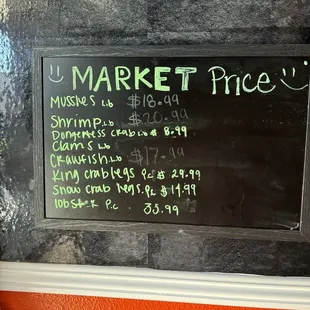 MARKET Price
Mussles LB $18.99
Shrimp LB $20.99
Dongerness crab LB $ 8.99
Clams LB
Crawfish LB $17.99
King crab legs Pc $ 29.99
Snow crab legs. Pc $ 14.99
lobster Pc 35.99